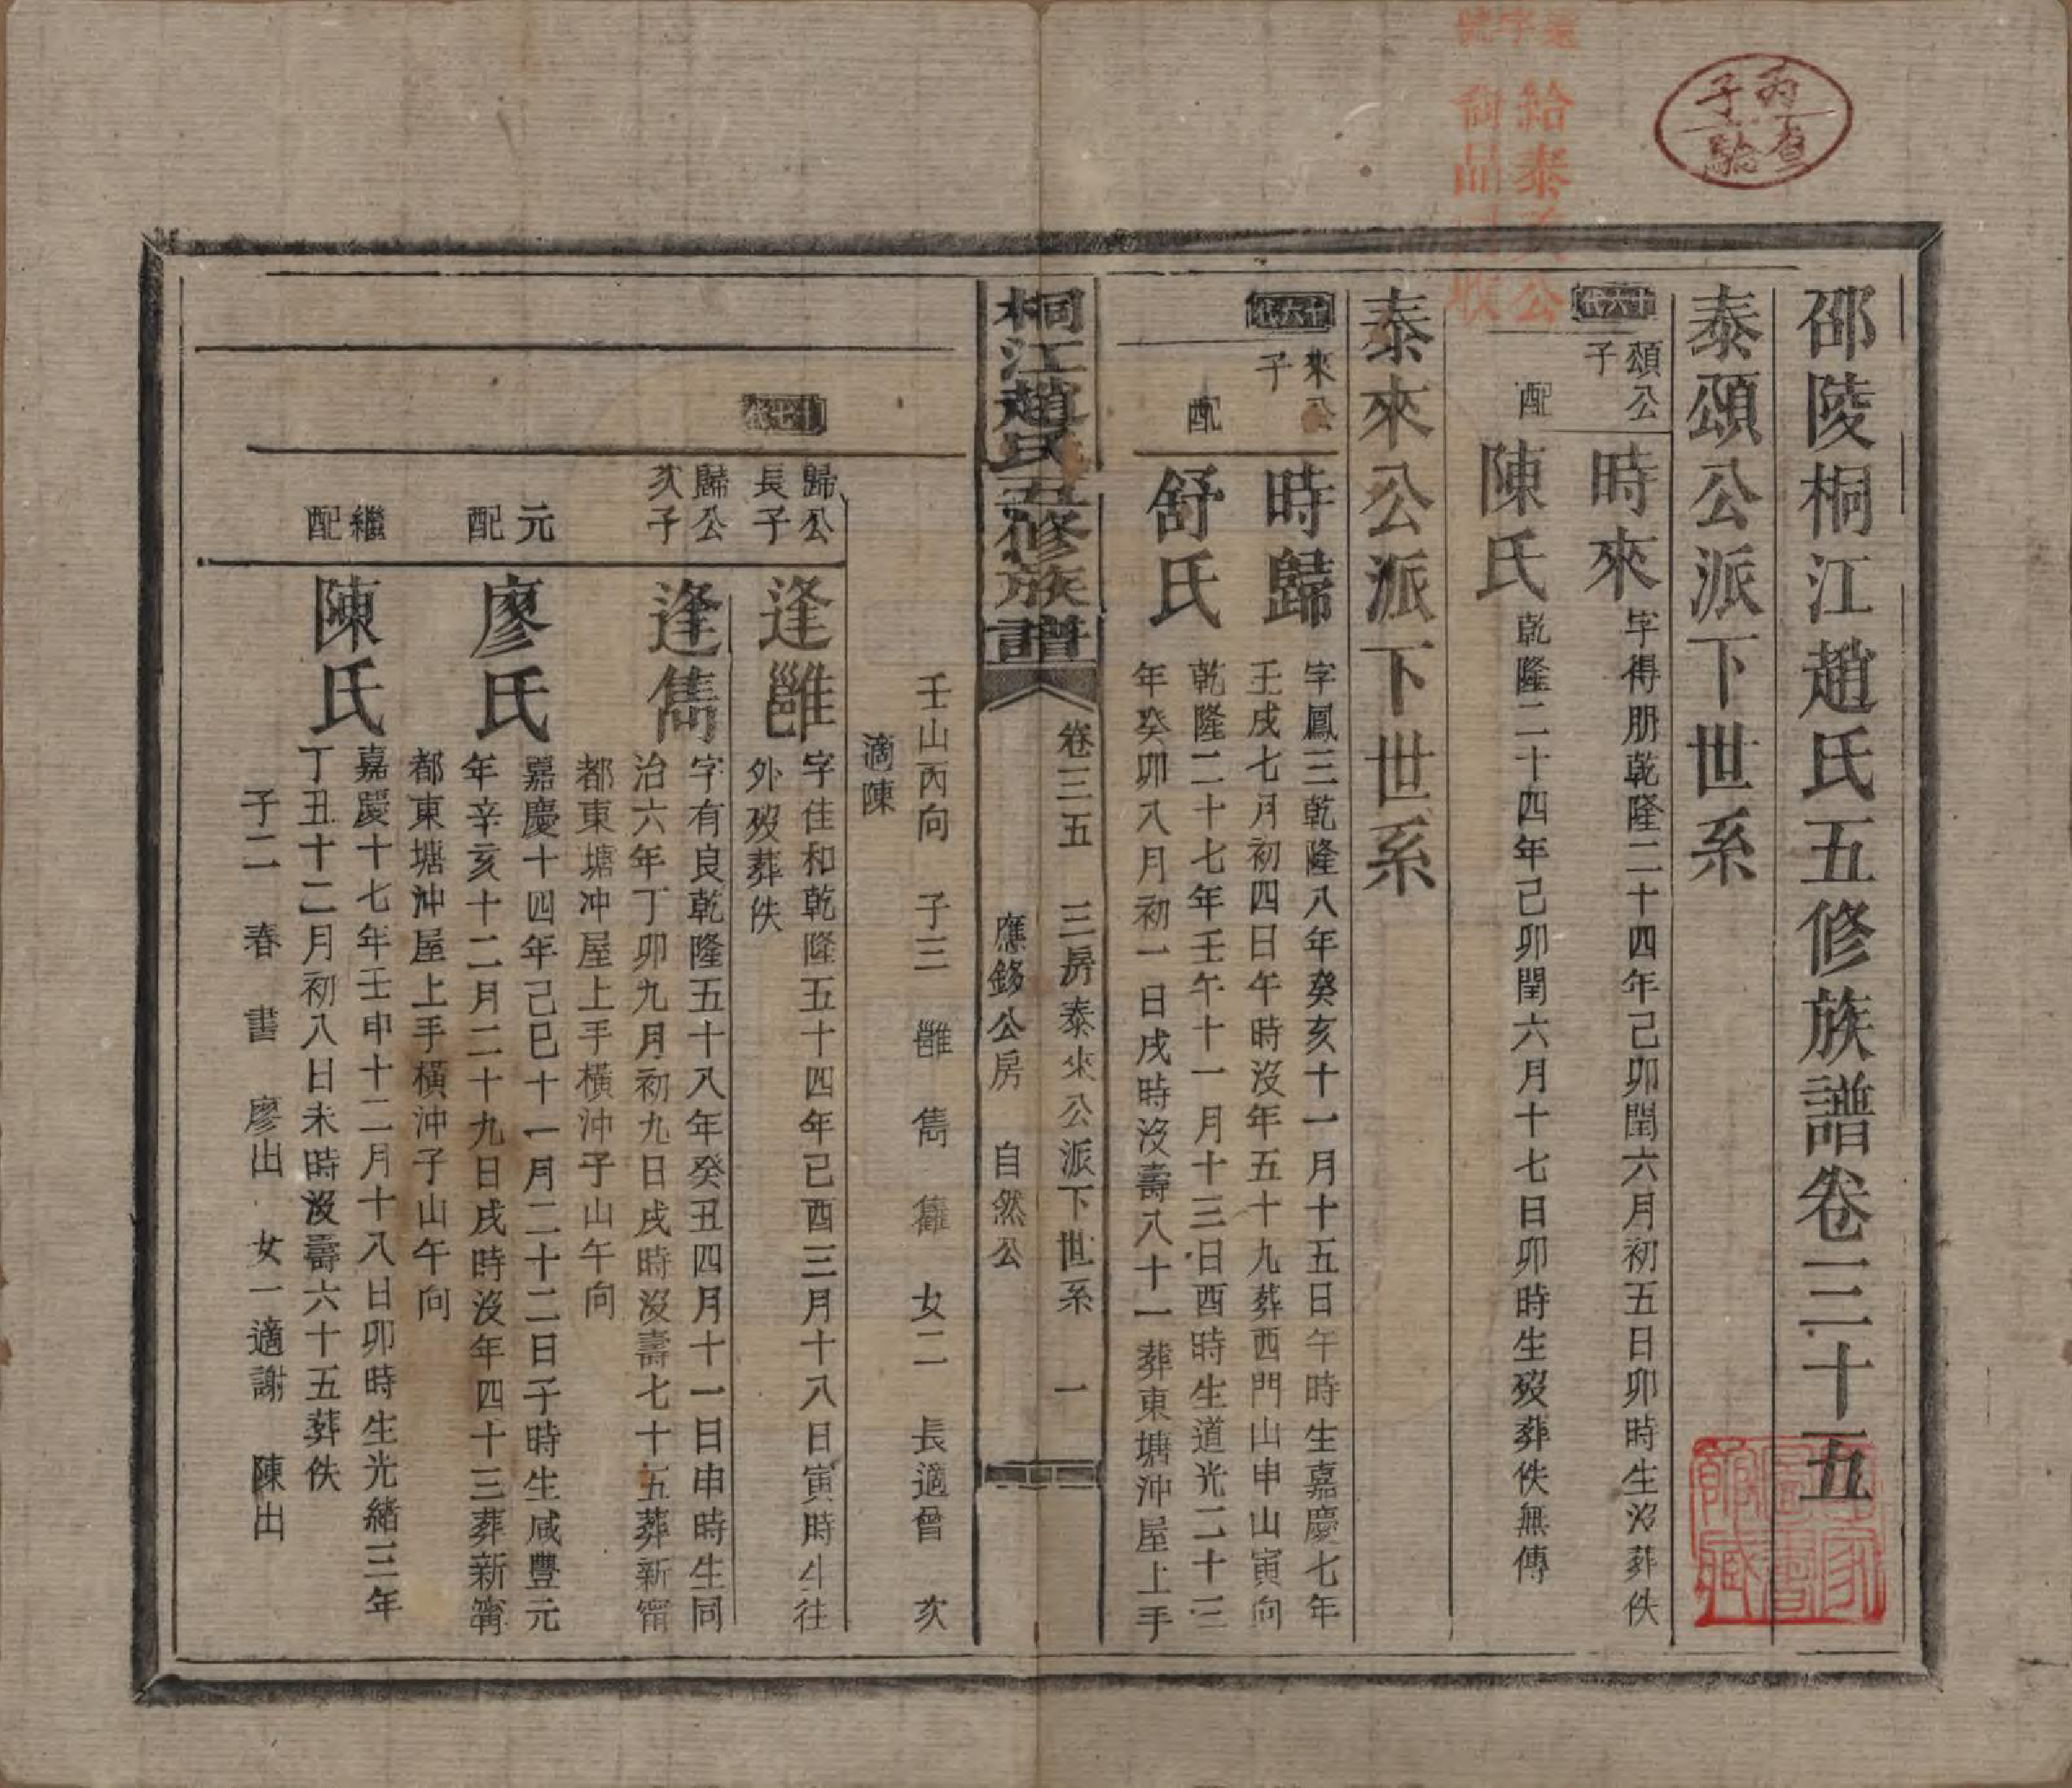 邵陵桐江趙氏五修族譜卷三十五
泰頌公派下世系
十六代
頌公
子
時來
字得朋乾隆二十四年己卯閏六月初五日卯時生沒葬佚
配
陳氏
乾隆二十四年己卯閏六月十七日卯時生歿葬佚無傳
泰來公派下世系
十六代
來公
子
時歸
字鳳三乾隆八年癸亥十一月十五日午時生嘉慶七年
壬戌七月初四日午時沒年五十九葬西門山申山寅向
配
舒氏
乾隆二十七年壬午十一月十三日酉時生道光二十三
年癸卯八月初一日戌時沒壽八十一葬東塘沖屋上手
桐江趙氏五修族譜
卷三五 三房泰來公派下世系 一
應鉹公房 自然公
壬山丙向 子三 雝 雋 雜 女二 長適曾 次
適陳
十七代
歸公
長子
逢雝
字住和乾隆五十四年己酉三月十八日寅時生往
外歿葬佚
歸公
次子
逢雋
字有良乾隆五十八年癸丑四月十一日申時生同
治六年丁卯九月初九日戌時沒壽七十五葬新甯
都東塘沖屋上手橫沖子山午向
元
配
廖氏
嘉慶十四年己巳十一月二十二日子時生咸豐元
年辛亥十二月二十九日戌時沒年四十三葬新甯
都東塘沖屋上手橫沖子山午向
繼
配
陳氏
嘉慶十七年壬申十二月十八日卯時生光緒三年
丁丑十二月初八日未時沒壽六十五葬佚
子二 春 書 廖出 女一適謝 陳出
給泰
公
品
收
字號
丙子
查驗
圖書
館藏